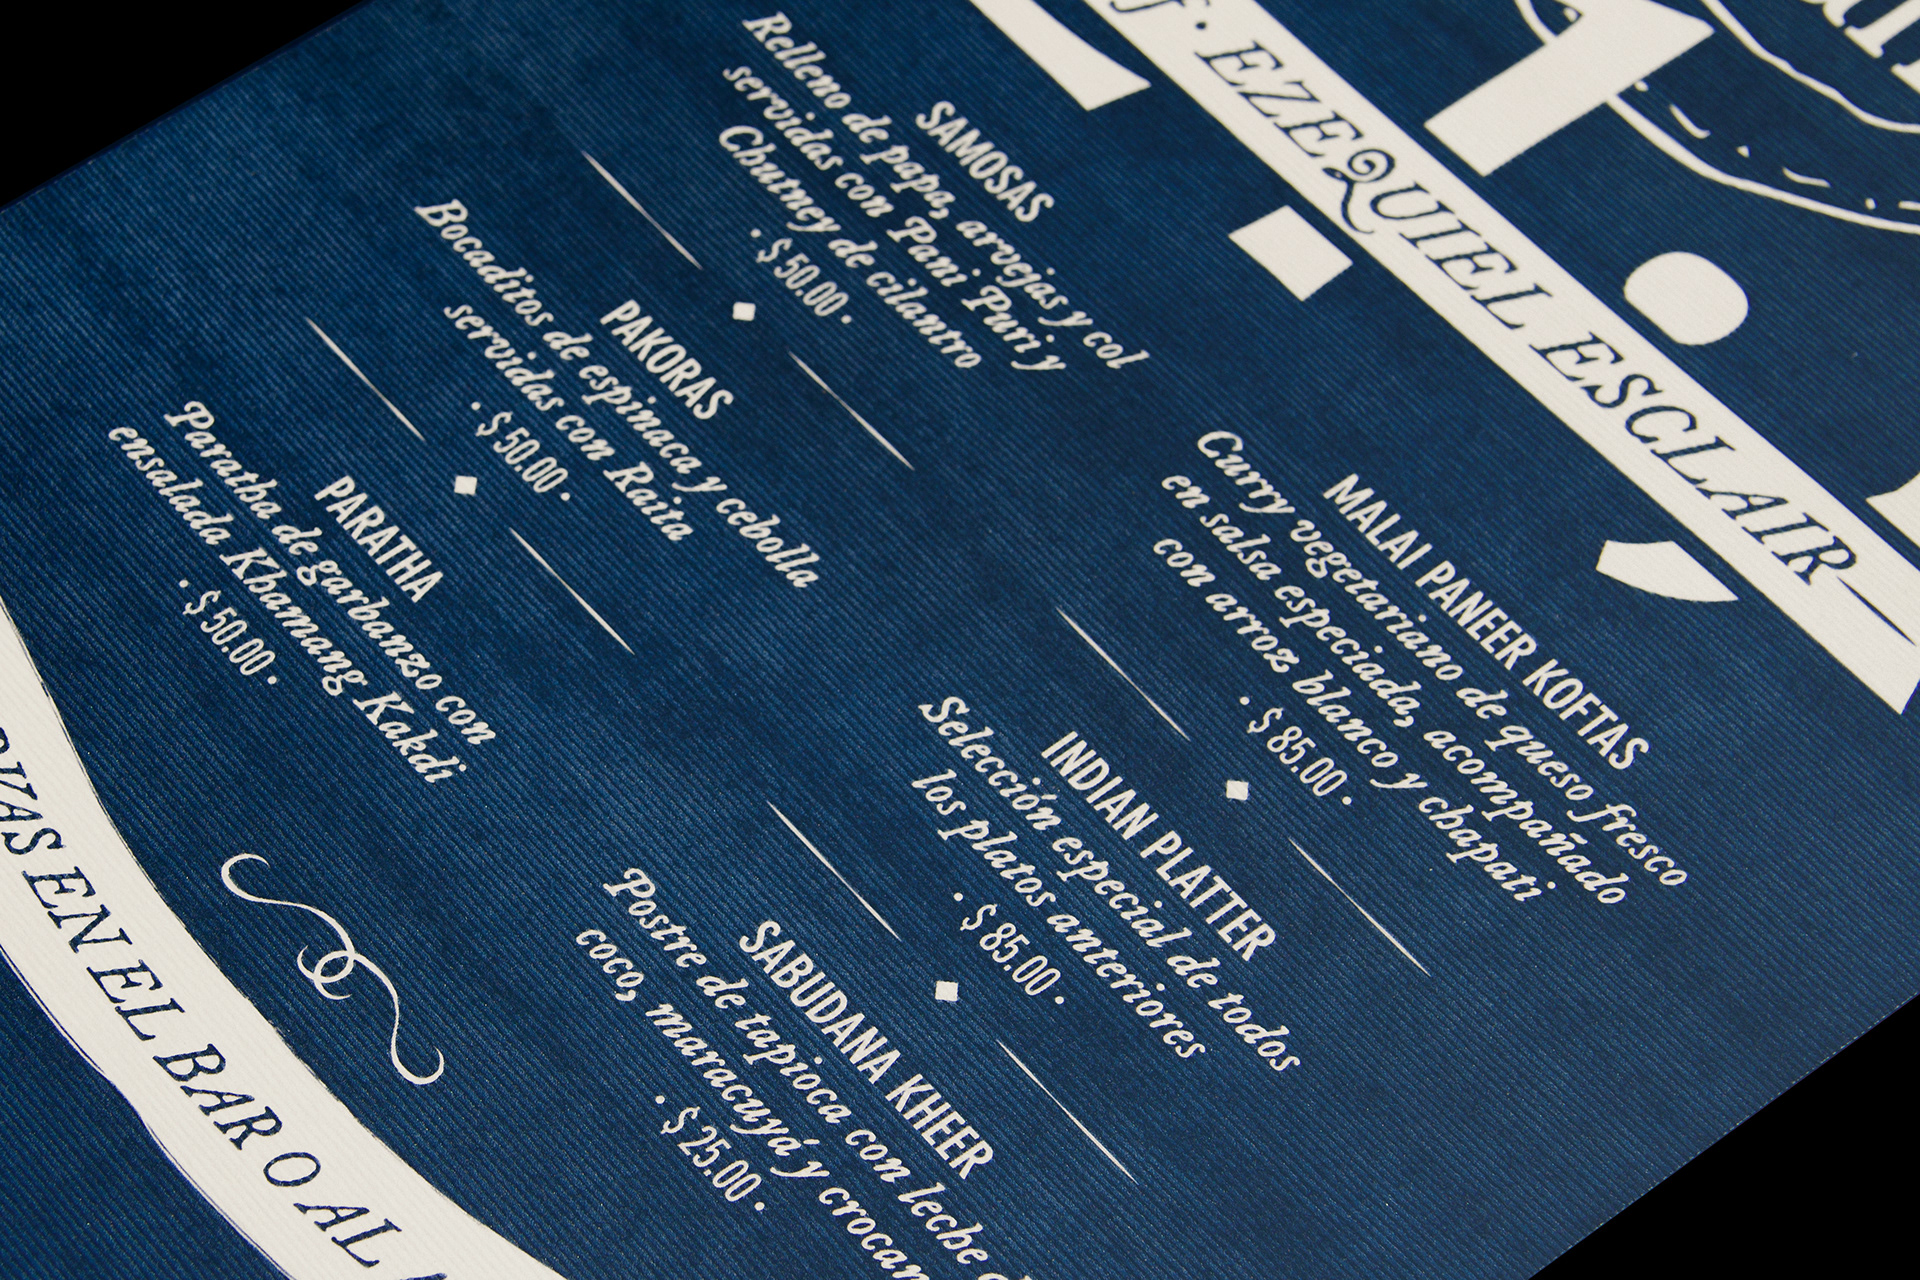 EZEQUIEL ESCLAIR
SAMOSAS
Relleno de papa, arvejas y col
servidas con Pani Puri y
Chutney de cilantro
· $ 50.00 ·
PAKORAS
Bocaditos de espinaca y cebolla
servidas con Raita
· $ 50.00 ·
PARATHA
Paratha de garbanzo con
ensalada Khamang Kakdi
· $ 50.00 ·
MALAI PANEER KOFTAS
Curry vegetariano de queso fresco
en salsa especiada, acompañado
con arroz blanco y chapati
· $ 85.00 ·
INDIAN PLATTER
Selección especial de todos
los platos anteriores
· $ 85.00 ·
SABUDANA KHEER
Postre de tapioca con leche
coco, maracuyá y crocan
· $ 25.00 ·
RVAS EN EL BAR O AL